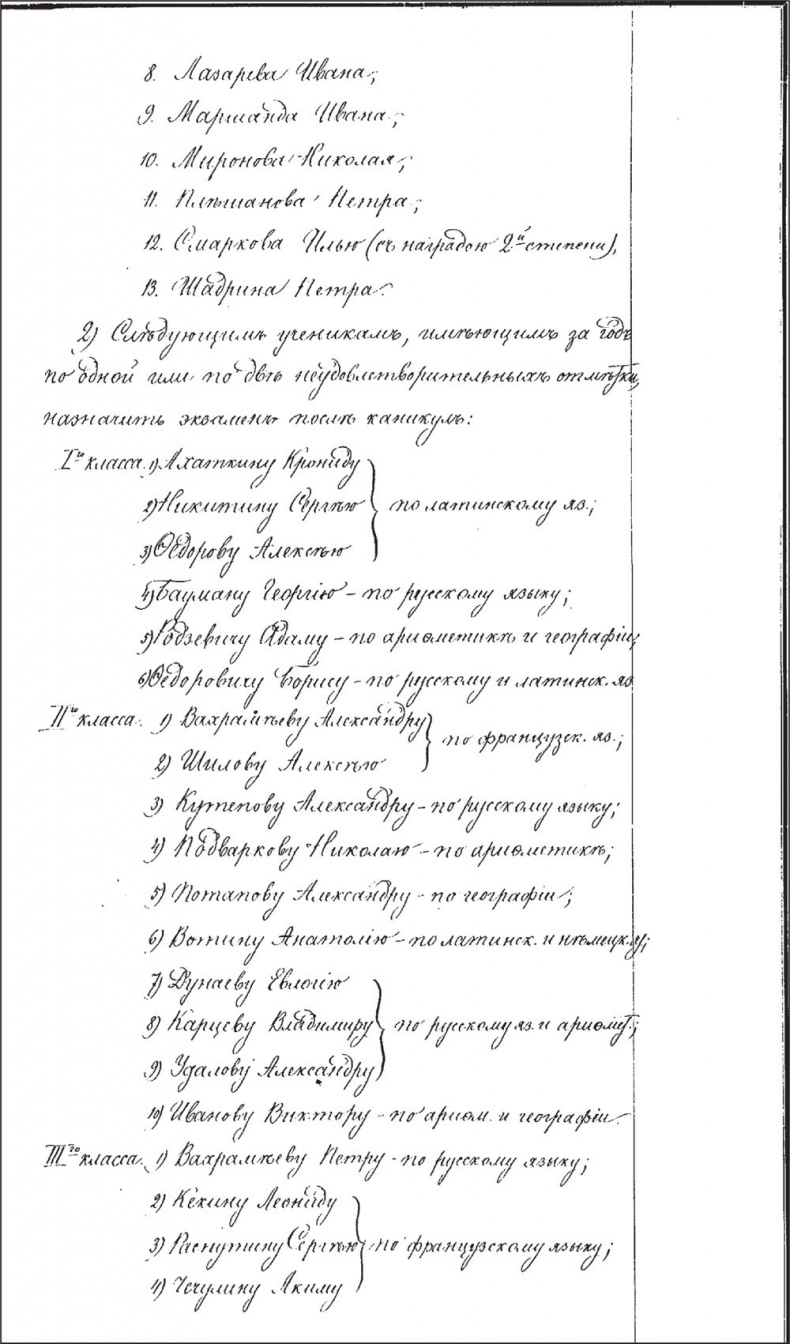 8. Лазарева Ивана;
9. Маршанда Ивана;
10. Миронова Николая;
11. Плѣшанова Петра;
12. Смаркова Илью (съ наградою 2й степени),
13. Шадрина Петра.
2) Слѣдующимъ ученикамъ, имѣющимъ за годъ
по одной или по двѣ неудовлетворительныхъ отмѣтки,
назначить экзаменъ послѣ каникулъ:
Iго класса. 1) Ахаткину Крониду
2) Никитину Сергѣю } по латинскому яз.;
3) Ѳедорову Алексѣю
4) Бауману Георгію – по русскому языку;
5) Родзевичу Адаму – по ариѳметикѣ и географіи;
6) Ѳедоровичу Борису – по русскому и латинск. яз
IIго класса. 1) Вахрамѣеву Александру } по французск. яз.;
2) Шилову Алексѣю
3) Кутепову Александру – по русскому языку;
4) Подваркову Николаю – по ариѳметикѣ;
5) Потапову Александру – по географіи;
6) Вотину Анатолію – по латинск. и нѣмецк. я;
7) Дунаеву Евлогію
8) Карцеву Владимиру } по русскому яз. и ариѳмет.;
9) Удалову Александру
10) Иванову Виктору – по ариѳм. и географіи.
IIIго класса. 1) Вахрамѣеву Петру – по русскому языку;
2) Кекину Леониду
3) Распутину Сергѣю } по французскому языку;
4) Чечулину Акиму